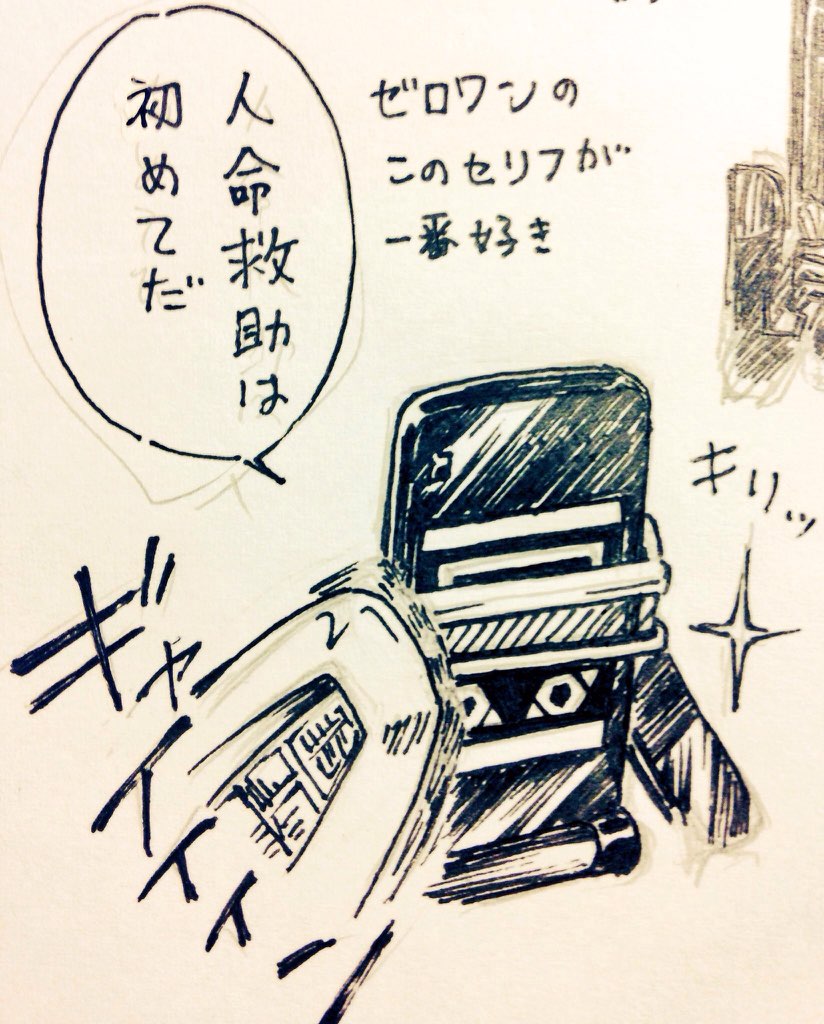 人命救助は
初めてだ
ゼロワンの
このセリフが
一番好き
キリッ
ギャイイイーン